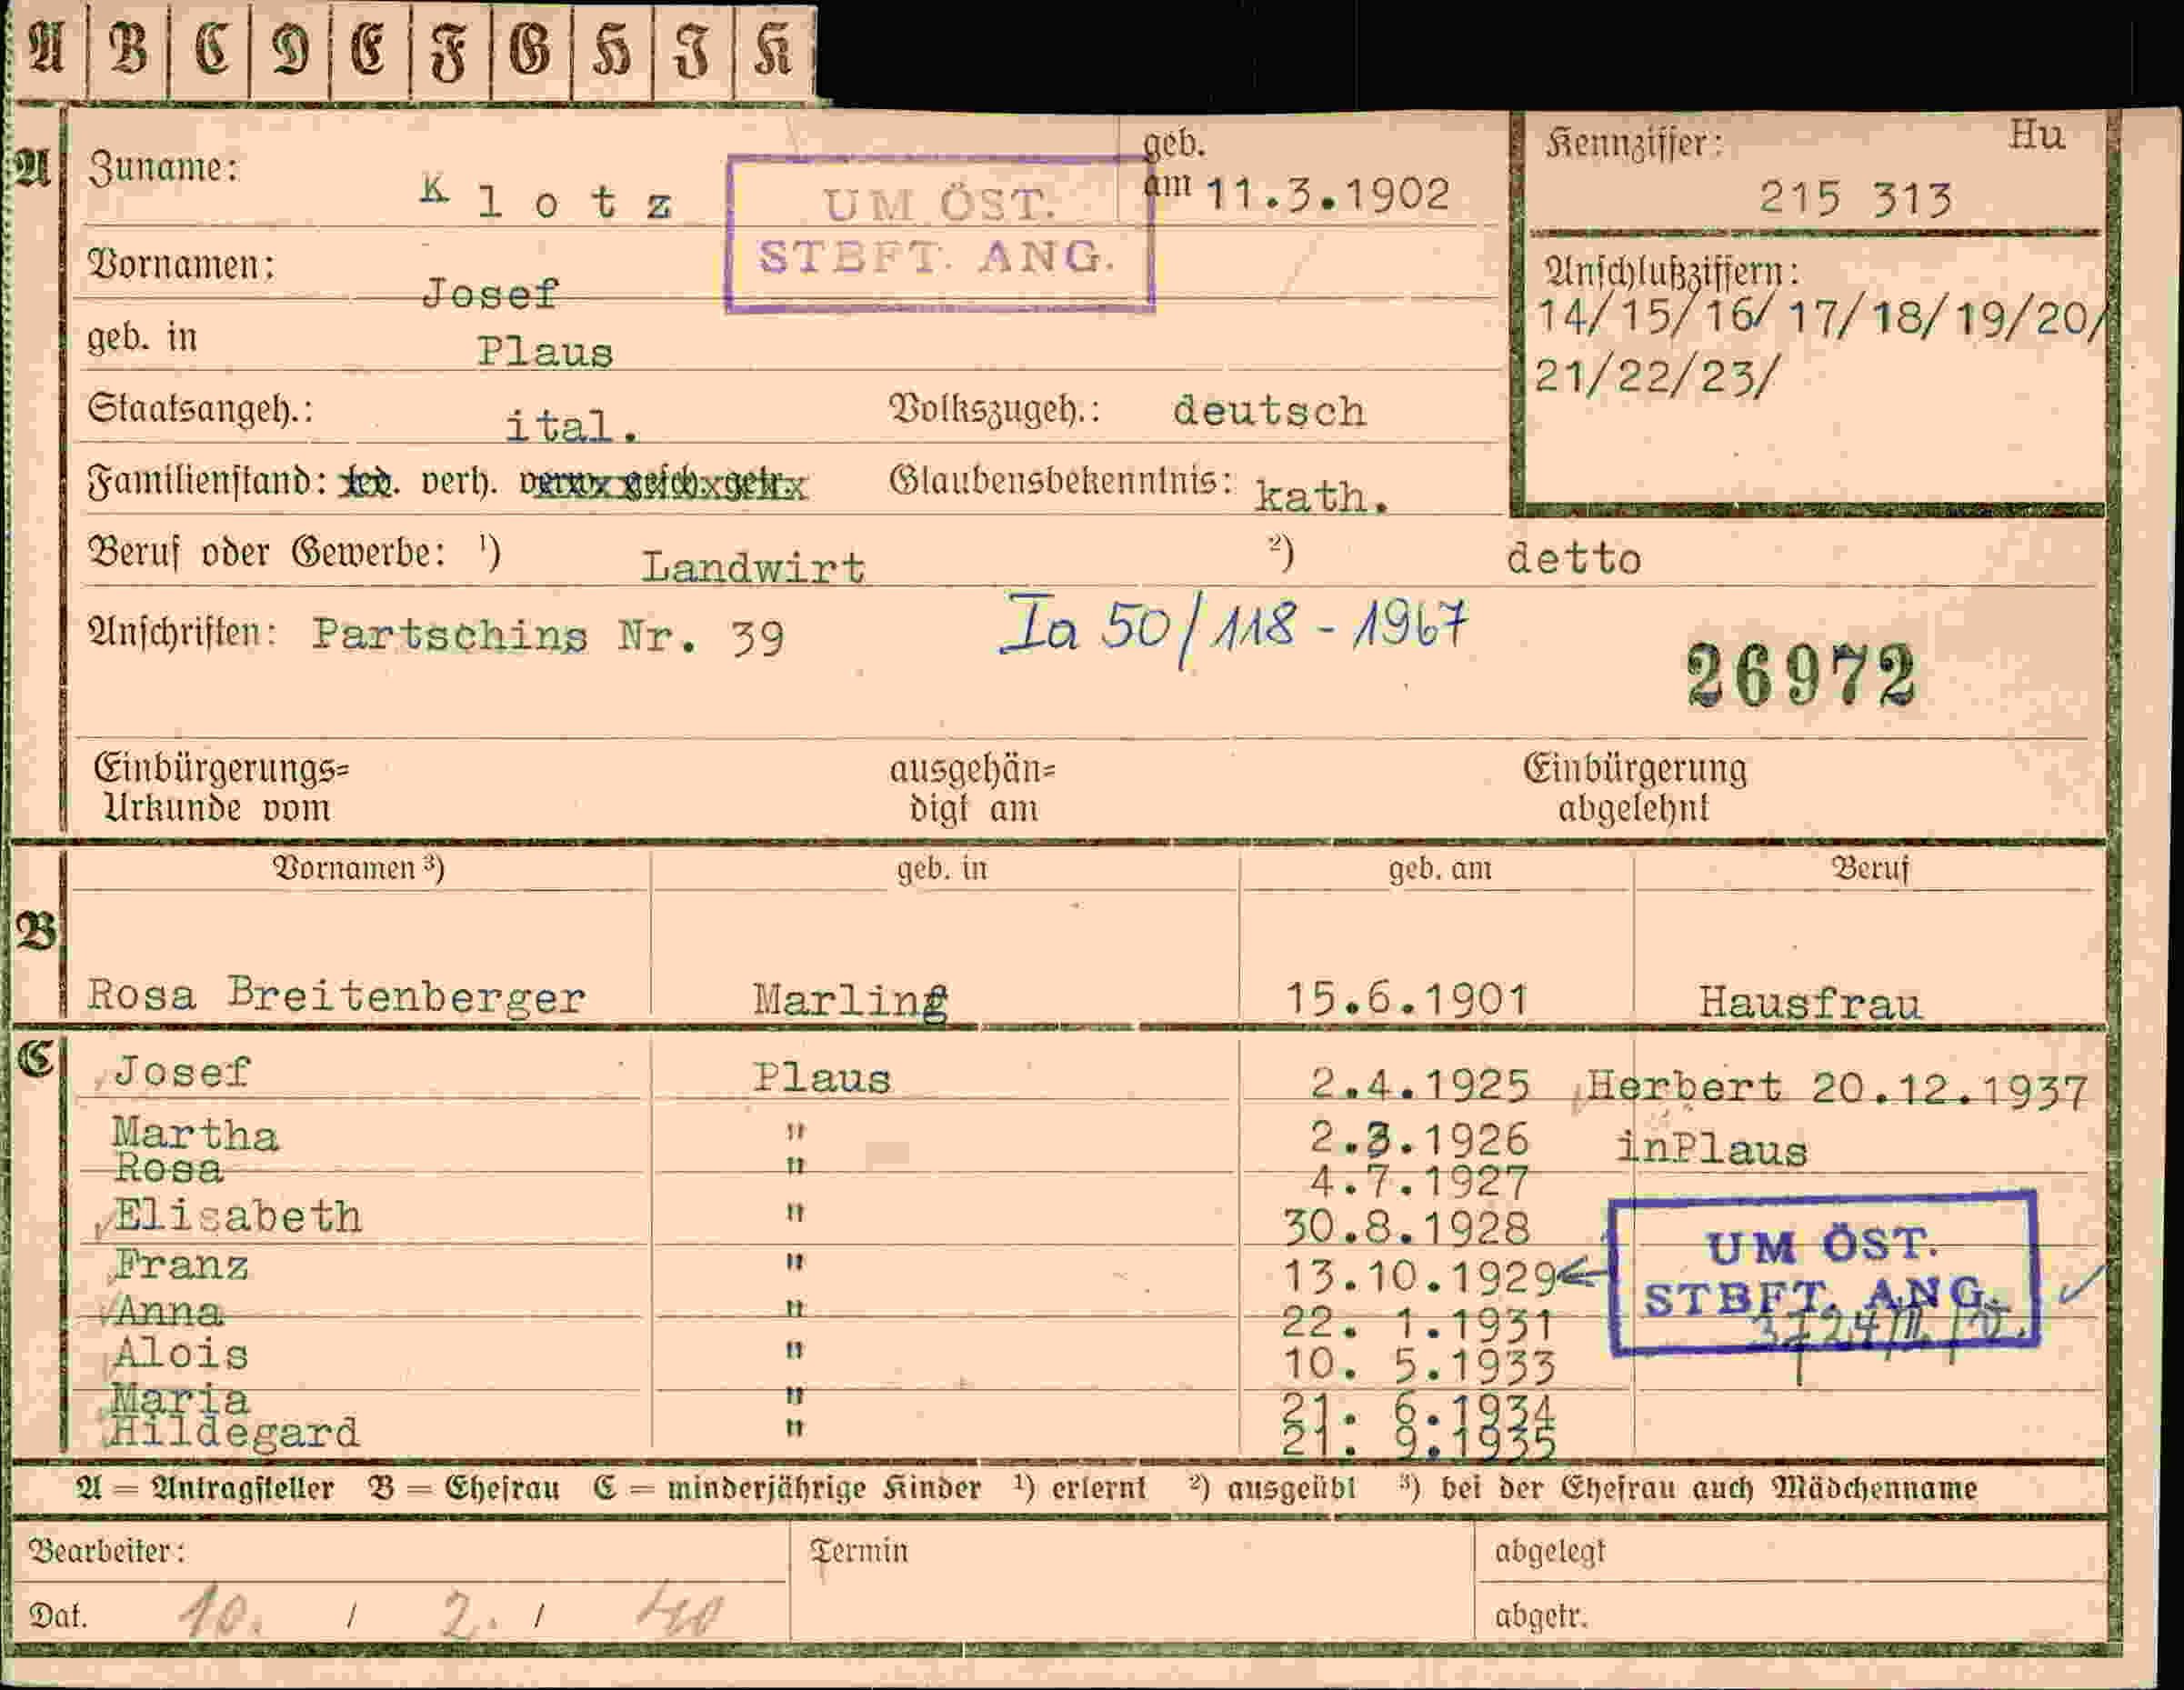 A B C D E F G H I K
A
Zuname: Klotz
geb. am 11.3.1902
UM ÖST.
STBFT. ANG.
Kennziffer: Hu
215 313
Vornamen: Josef
Anschlußziffern:
14/15/16/17/18/19/20/
21/22/23/
geb. in Plaus
Staatsangeh.: ital. Volkszugeh.: deutsch
Familienstand: led. verh. verw. gesch. getr. Glaubensbekenntnis: kath.
Beruf oder Gewerbe: ¹) Landwirt ²) detto
Anschriften: Partschins Nr. 39 Ia 50/118 - 1967
26972
Einbürgerungs= ausgehän= Einbürgerung
Urkunde vom digt am abgelehnt
Vornamen ³) geb. in geb. am Beruf
B
Rosa Breitenberger Marling 15.6.1901 Hausfrau
C
Josef Plaus 2.4.1925 Herbert 20.12.1937
Martha " 2.3.1926 inPlaus
Rosa " 4.7.1927
Elisabeth " 30.8.1928
Franz " 13.10.1929
UM ÖST.
STBFT. ANG.
Anna " 22. 1.1931
Alois " 10. 5.1933
Maria " 21. 6.1934
Hildegard " 21. 9.1935
A = Antragsteller B = Ehefrau C = minderjährige Kinder ¹) erlernt ²) ausgeübt ³) bei der Ehefrau auch Mädchenname
Bearbeiter: Termin abgelegt
Dat. 10. / 2. / 40 abgetr.